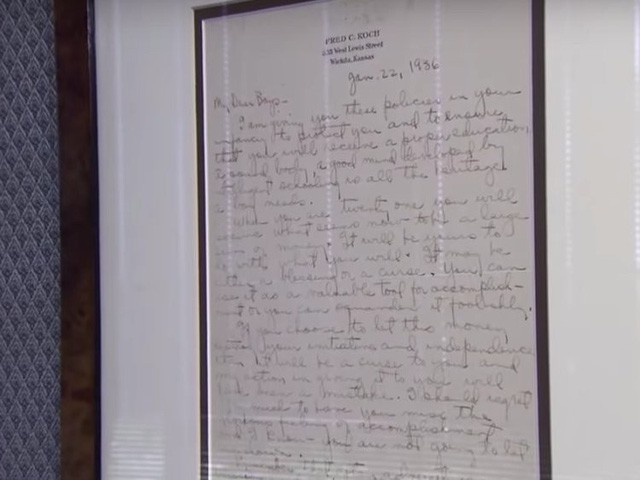 FRED C. KOCH
West Lewis Street
Wichita, Kansas
Jan. 22, 1936
My Dear Boys -
I am giving you these policies in your
infancy to protect you and to ensure
that you will secure a proper education,
a sound body, a good mind developed by
diligent schooling is all the heritage
a boy needs.
When you are twenty one you will
receive what seems now to be a large
sum of money. It will be yours to
do with what you will. It may be
either a blessing or a curse. You can
use it as a valuable tool for accomplish-
ment or you can squander it foolishly.
If you choose to let this money
destroy your initiative and independence
then it will be a curse to you and
my action in giving it to you will
have been a mistake. I should regret
very much to have you miss the
glorious feeling of accomplishment
and I know - you are not going to let